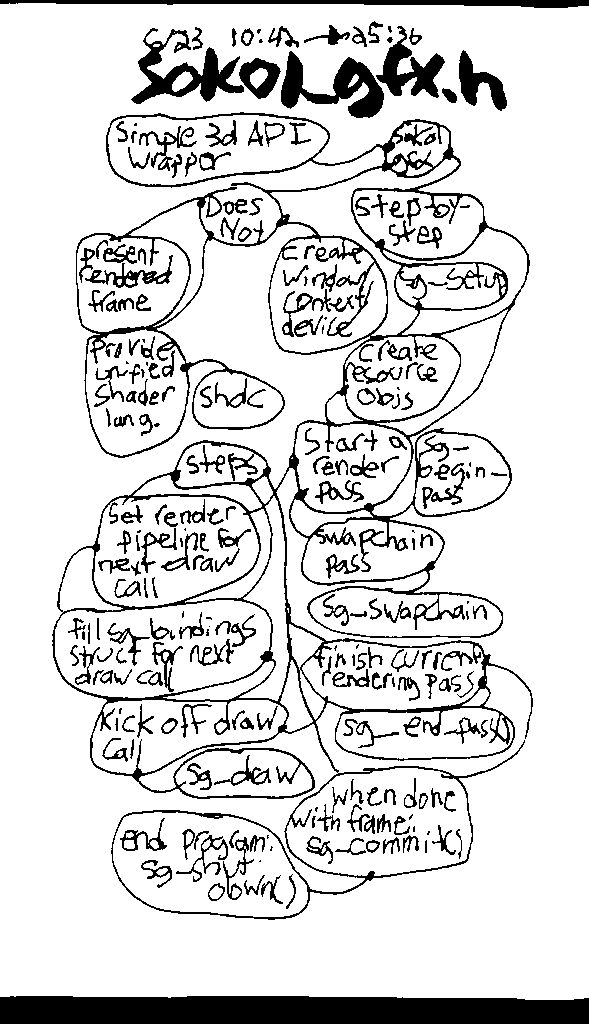 6/23 10:42 → 25:36
sokol_gfx.h
Simple 3d API
wrapper
sokol
gfx
Does
Not
Step-by-
step
present
rendered
frame
create
window/
context/
device
sg_setup
provide
unified
shader
lang.
shdc
create
resource
objs
steps
Start a
render
pass
sg_
begin_
pass
Set render
pipeline for
next draw
call
swapchain
pass
sg_swapchain
fill sg_bindings
struct for next
draw call
finish current
rendering pass
Kick off draw
call
sg_end_pass()
sg_draw
when done
with frame:
sg_commit()
end program:
sg_shut
down()